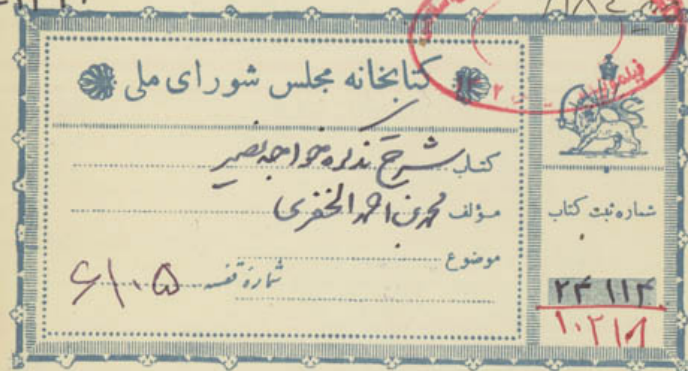 کتابخانه مجلس شورای ملی
کتاب شرح تذکره خواجه نصیر
مؤلف محمد بن احمد الخفری
موضوع
شماره قفسه ۶۱۰۵
شماره ثبت کتاب
۲۴۱۱۴